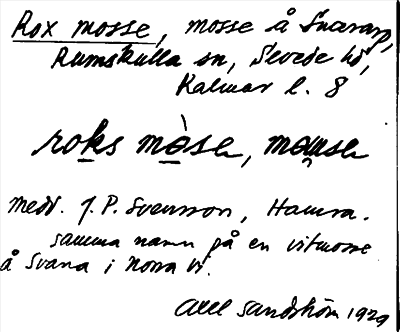 Rox mosse, mosse å Snararp,
Rumskulla sn, Sevede hd,
Kalmar l. 8
roks mòse, mause
medd. J. P. Svensson, Hamra.
samma namn på en vitmosse
å Svana i Norra Vi.
Axel Sandström 1929